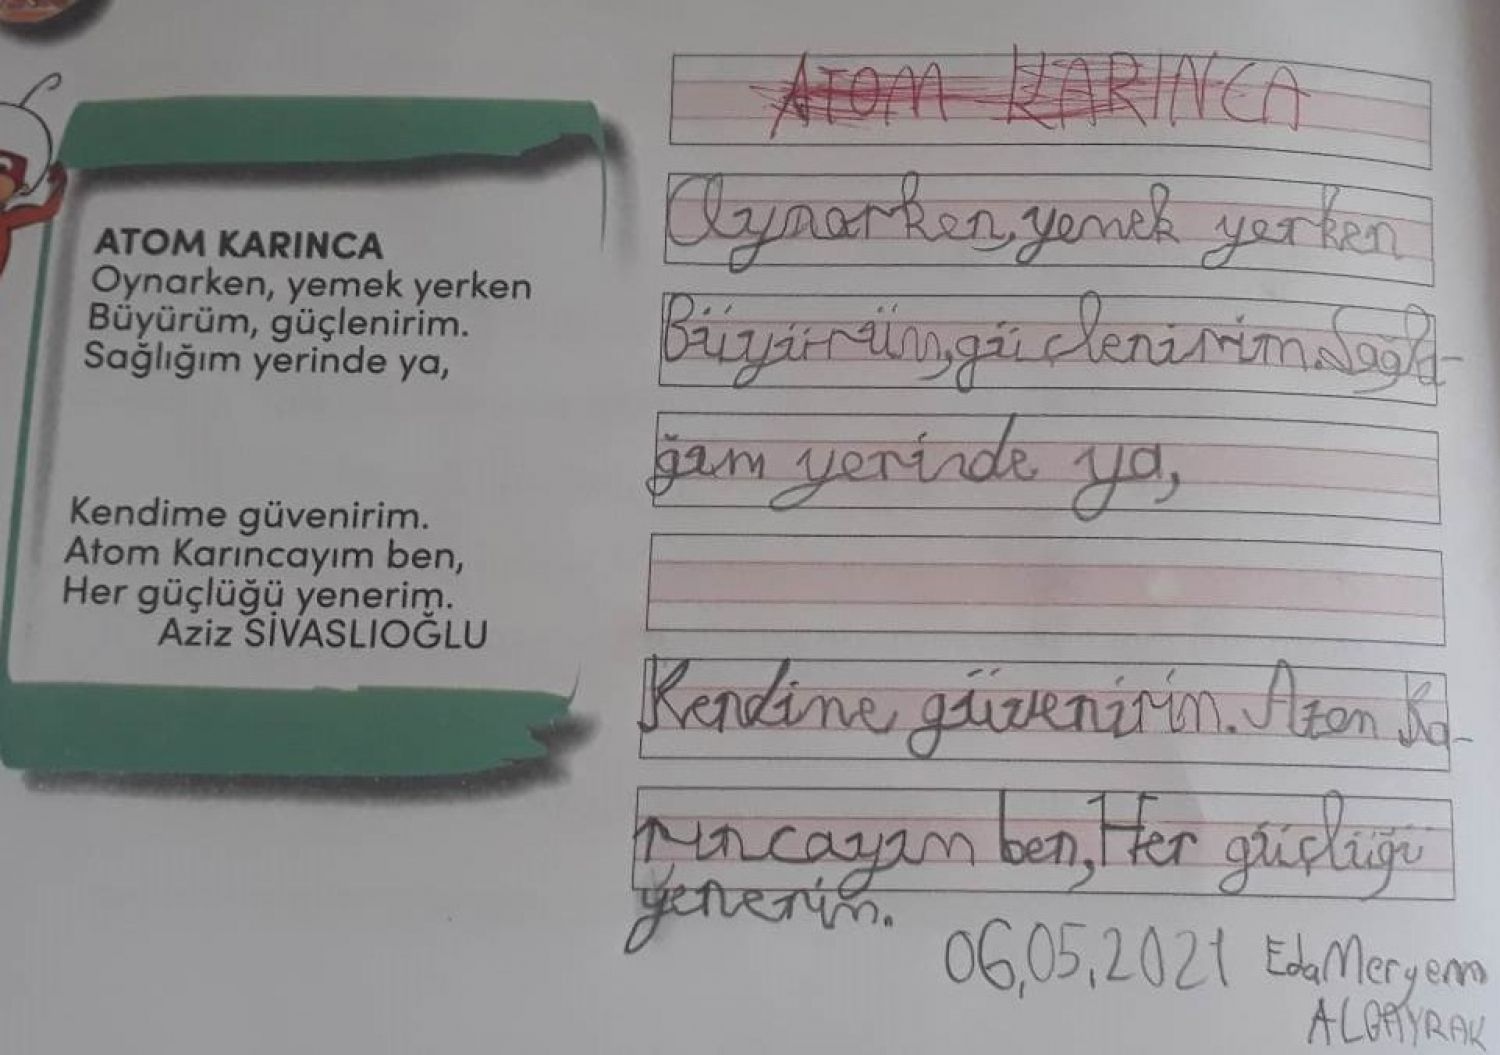 ATOM KARINCA
Oynarken, yemek yerken
Büyürüm, güçlenirim.
Sağlığım yerinde ya,
Kendime güvenirim.
Atom Karıncayım ben,
Her güçlüğü yenerim.
Aziz SİVASLIOĞLU
ATOM KARINCA
Oynarken, yemek yerken
Büyürüm, güçlenirim. Sağlı-
ğım yerinde ya,
Kendine güvenirim. Atom Ka-
rıncayım ben, Her güçlüğü
yenerim.
06,05,2021 Eda Meryem
ALBAYRAK